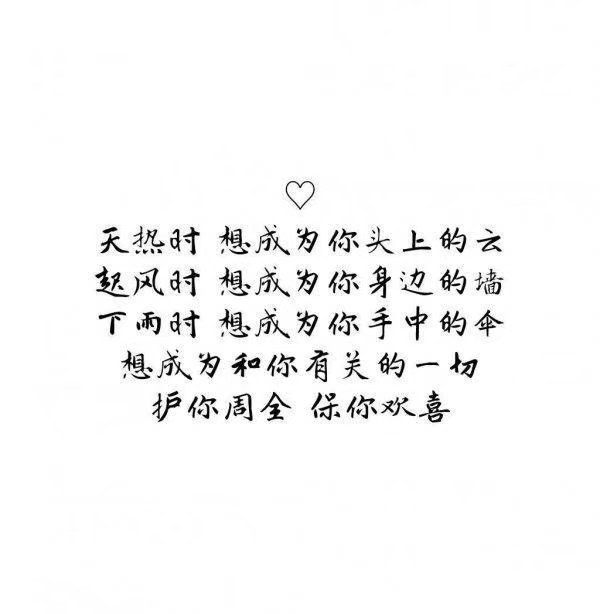 天热时 想成为你头上的云
起风时 想成为你身边的墙
下雨时 想成为你手中的伞
想成为和你有关的一切
护你周全 保你欢喜